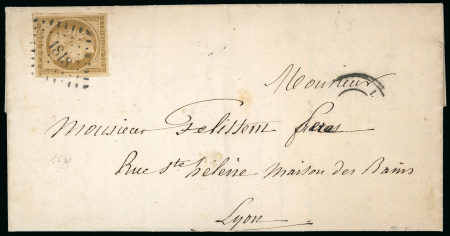 1818
Monsieur
Monsieur Felissent frères
Rue Ste hélène Maison des Bains
Lyon